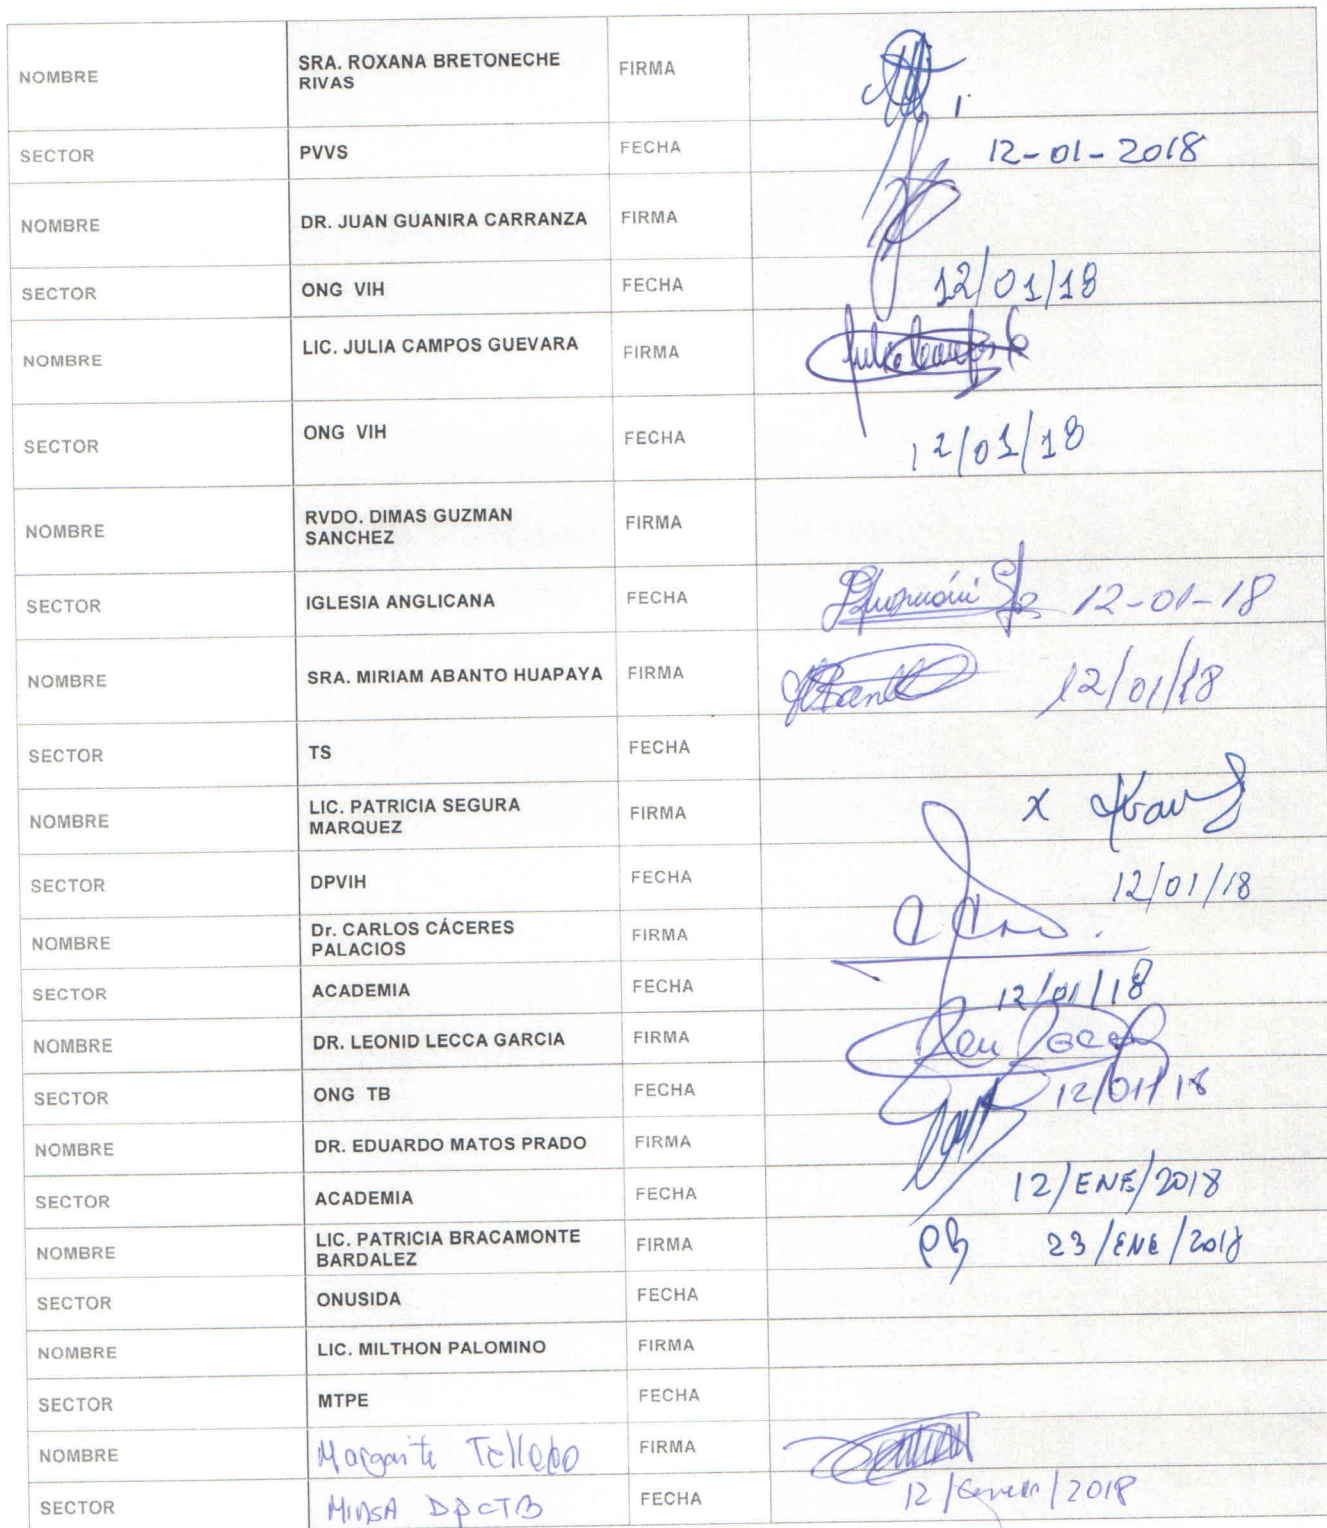 NOMBRE SRA. ROXANA BRETONECHE RIVAS FIRMA
SECTOR PVVS FECHA 12-01-2018
NOMBRE DR. JUAN GUANIRA CARRANZA FIRMA
SECTOR ONG VIH FECHA 12/01/18
NOMBRE LIC. JULIA CAMPOS GUEVARA FIRMA
SECTOR ONG VIH FECHA 12/01/18
NOMBRE RVDO. DIMAS GUZMAN SANCHEZ FIRMA
SECTOR IGLESIA ANGLICANA FECHA 12-01-18
NOMBRE SRA. MIRIAM ABANTO HUAPAYA FIRMA 12/01/18
SECTOR TS FECHA
NOMBRE LIC. PATRICIA SEGURA MARQUEZ FIRMA x
SECTOR DPVIH FECHA 12/01/18
NOMBRE Dr. CARLOS CÁCERES PALACIOS FIRMA
SECTOR ACADEMIA FECHA 12/01/18
NOMBRE DR. LEONID LECCA GARCIA FIRMA
SECTOR ONG TB FECHA 12/01/18
NOMBRE DR. EDUARDO MATOS PRADO FIRMA
SECTOR ACADEMIA FECHA 12/ENE/2018
NOMBRE LIC. PATRICIA BRACAMONTE BARDALEZ FIRMA PB 23/ENE/2018
SECTOR ONUSIDA FECHA
NOMBRE LIC. MILTHON PALOMINO FIRMA
SECTOR MTPE FECHA
NOMBRE Margarita Telledo FIRMA
SECTOR MINSA DPCTB FECHA 12/Enero/2018